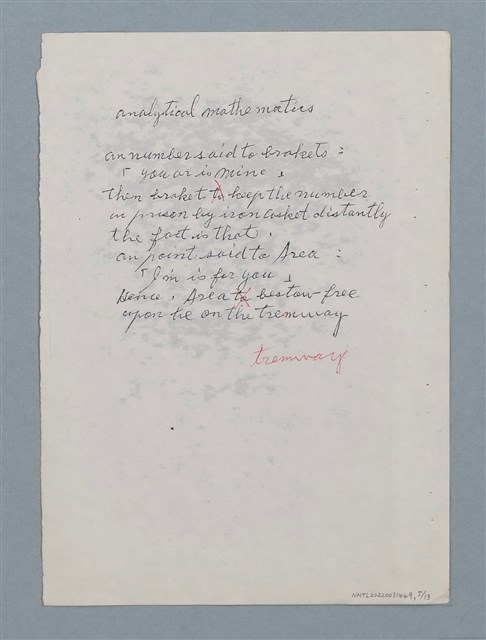 analytical mathematics
an number said to brakets :
「 you ar is mine 」
then braket to kepp the number
in prison by iron casket distantly
the fact is that .
an point said to Area :
「 I'm is for you 」
Hence , Area to bestow free
upon he on the tremway
tremway
NMTL20220031449, 5/13